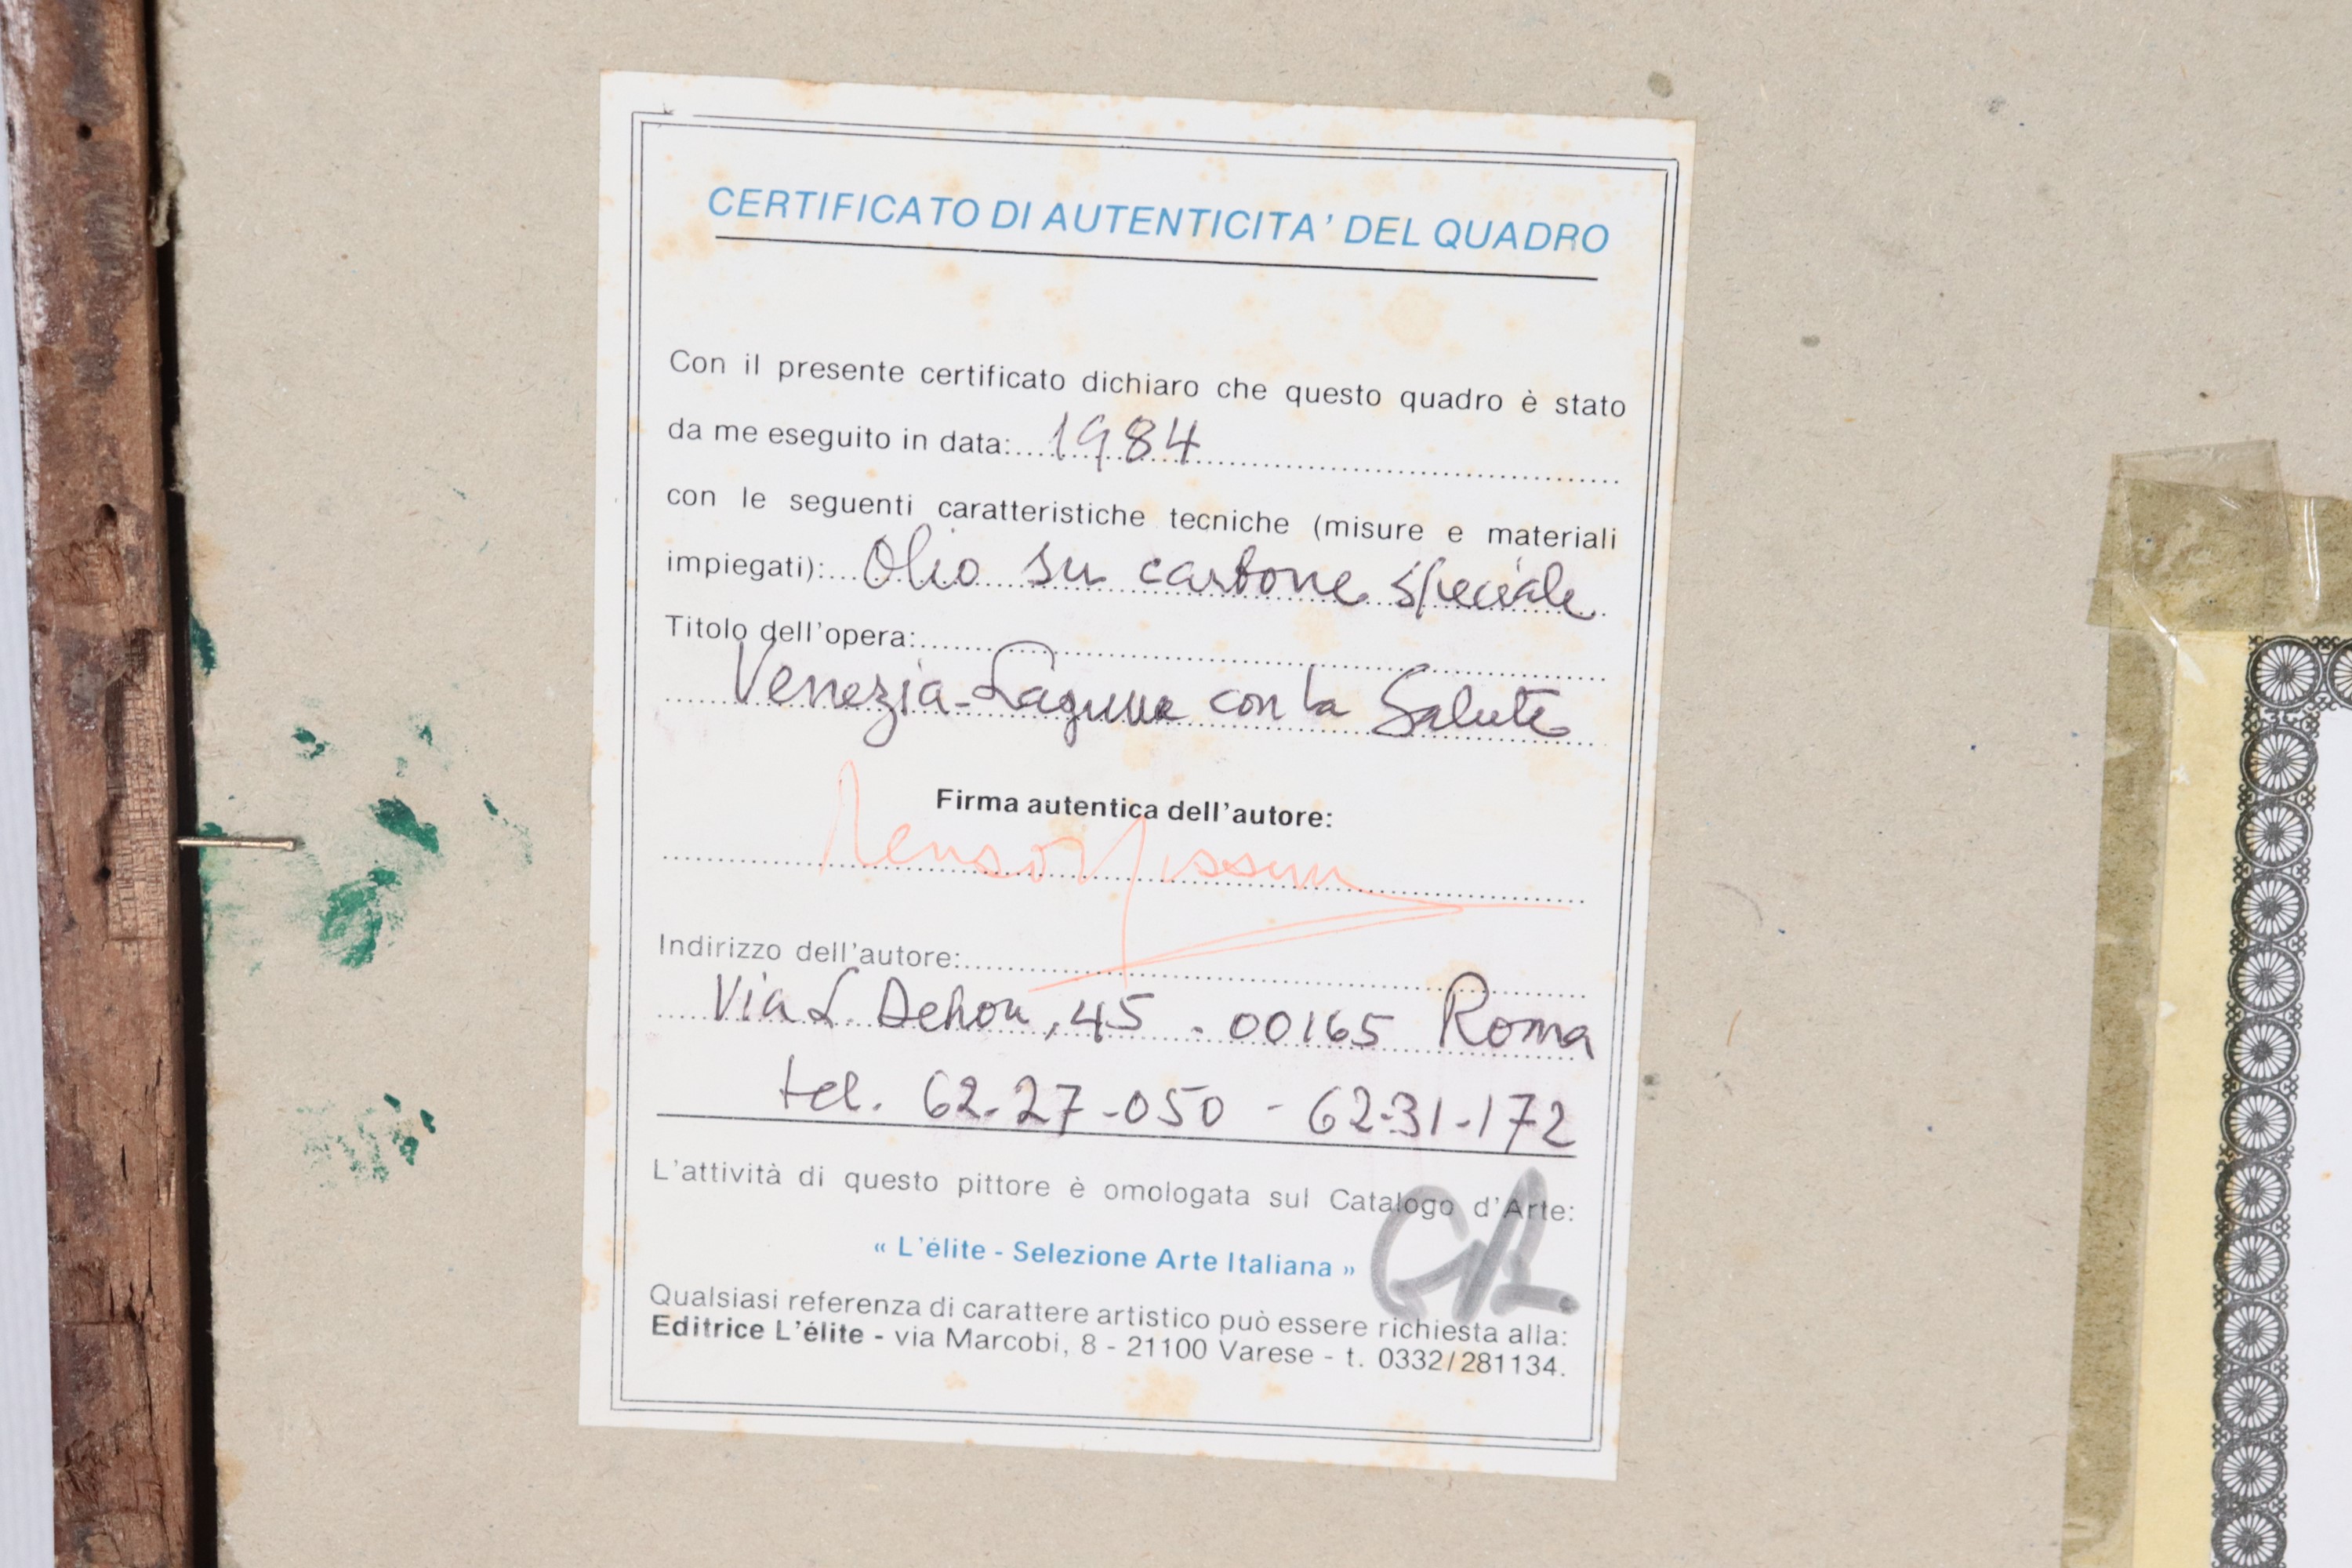 CERTIFICATO DI AUTENTICITA' DEL QUADRO
Con il presente certificato dichiaro che questo quadro è stato
da me eseguito in data: 1984
con le seguenti caratteristiche tecniche (misure e materiali
impiegati): Olio su cartone speciale
Titolo dell'opera:
Venezia-Laguna con la Salute
Firma autentica dell'autore:
Indirizzo dell'autore:
Via L. Dehon, 45 - 00165 Roma
tel. 62-27-050 - 62-31-172
L'attività di questo pittore è omologata sul Catalogo d'Arte:
« L'élite - Selezione Arte Italiana »
Qualsiasi referenza di carattere artistico può essere richiesta alla:
Editrice L'élite - via Marcobi, 8 - 21100 Varese - t. 0332/281134.